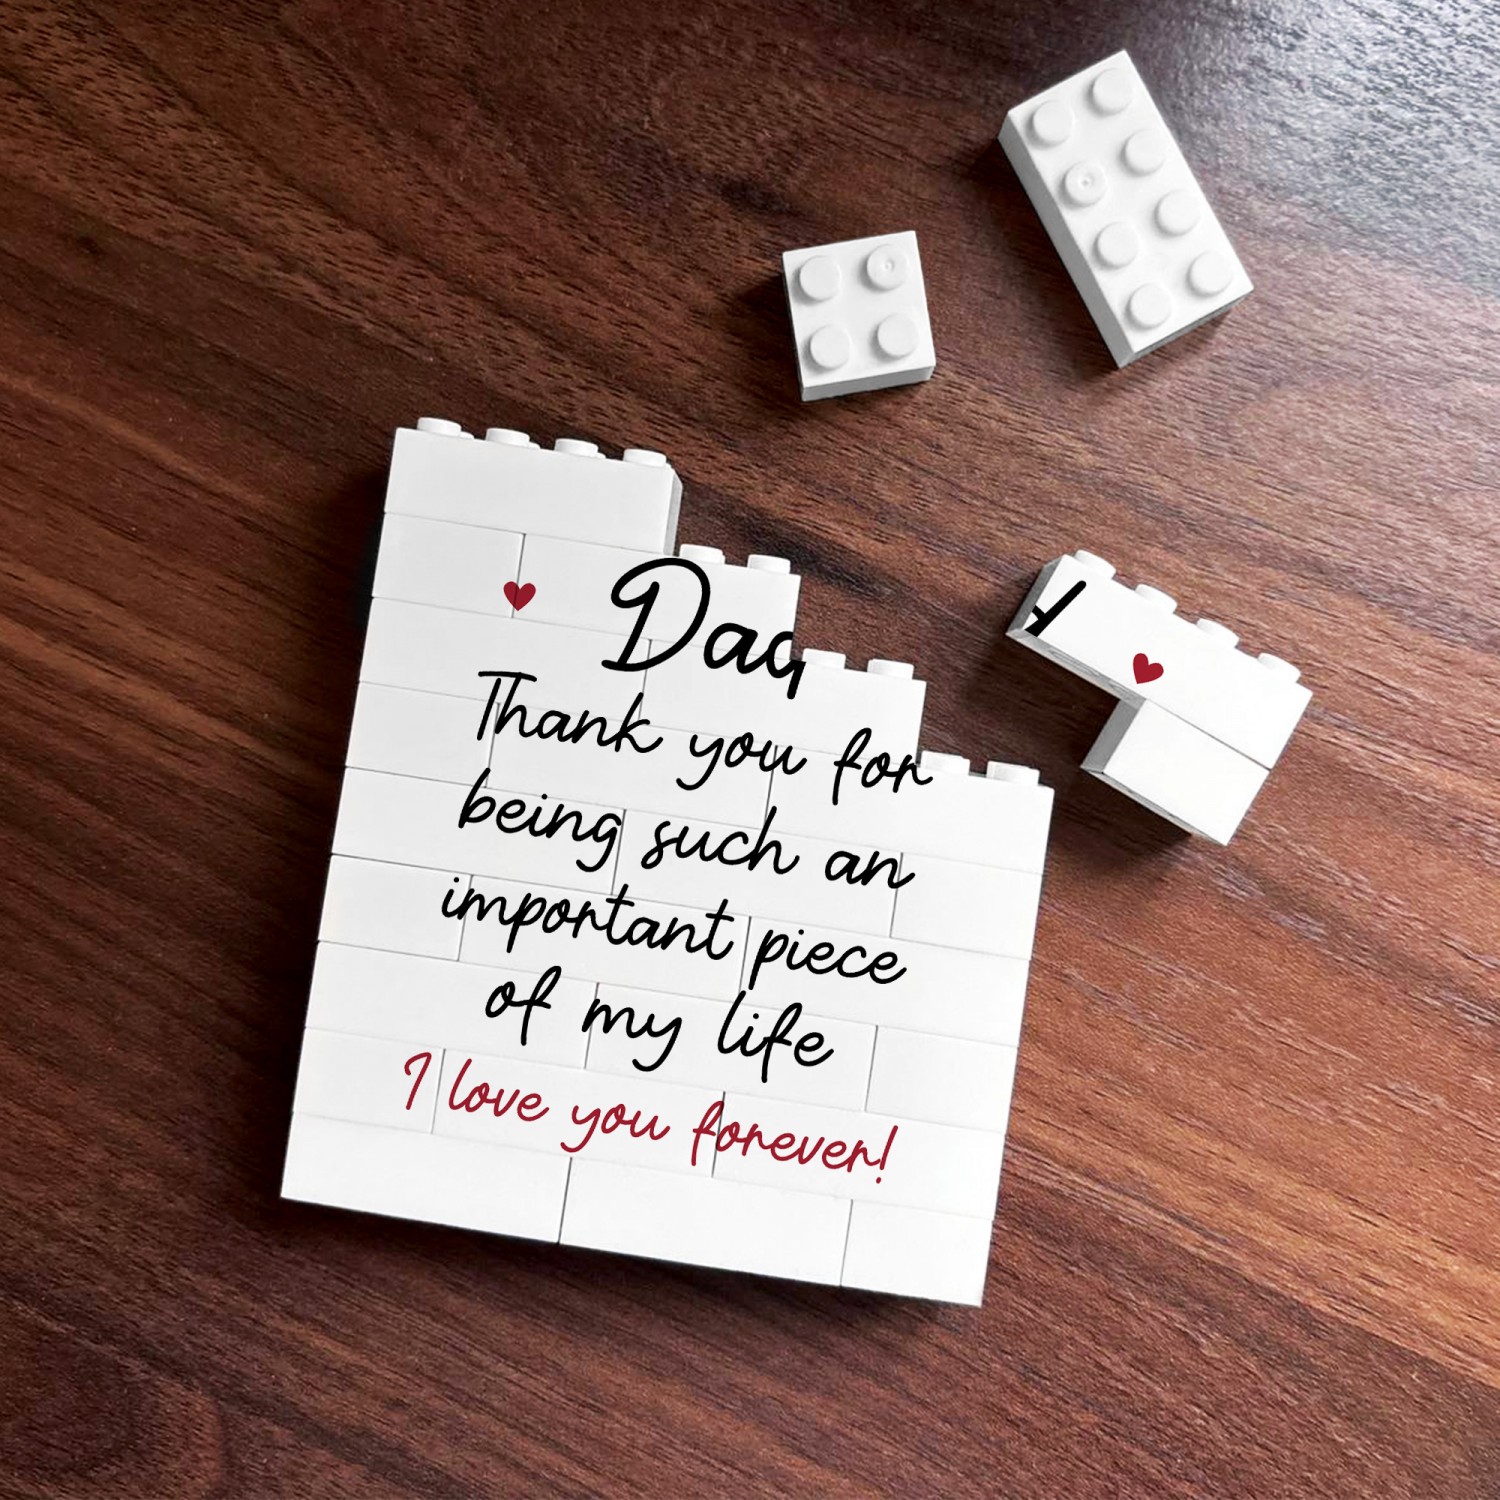 Dad
Thank you for
being such an
important piece
of my life
I love you forever!